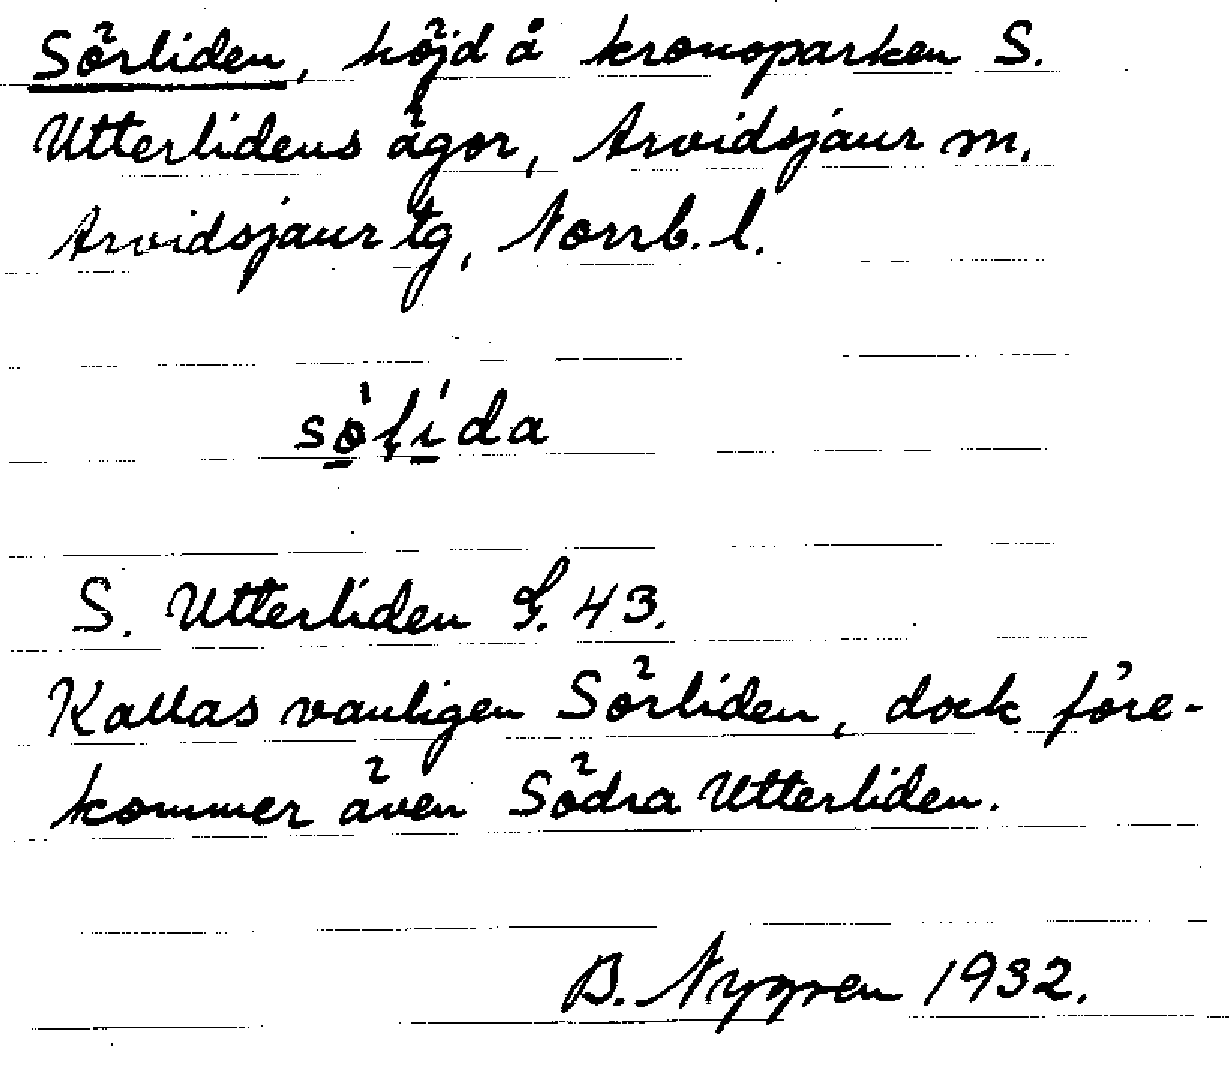 Sörliden, höjd å kronoparken S.
Utterlidens ägor, Arvidsjaur m.
Arvidsjaur tg, Norrb. l.
sö̀lída
S. Utterliden G. 43.
Kallas vanligen Sörliden, dock före-
kommer även Södra Utterliden.
B. Nygren 1932.